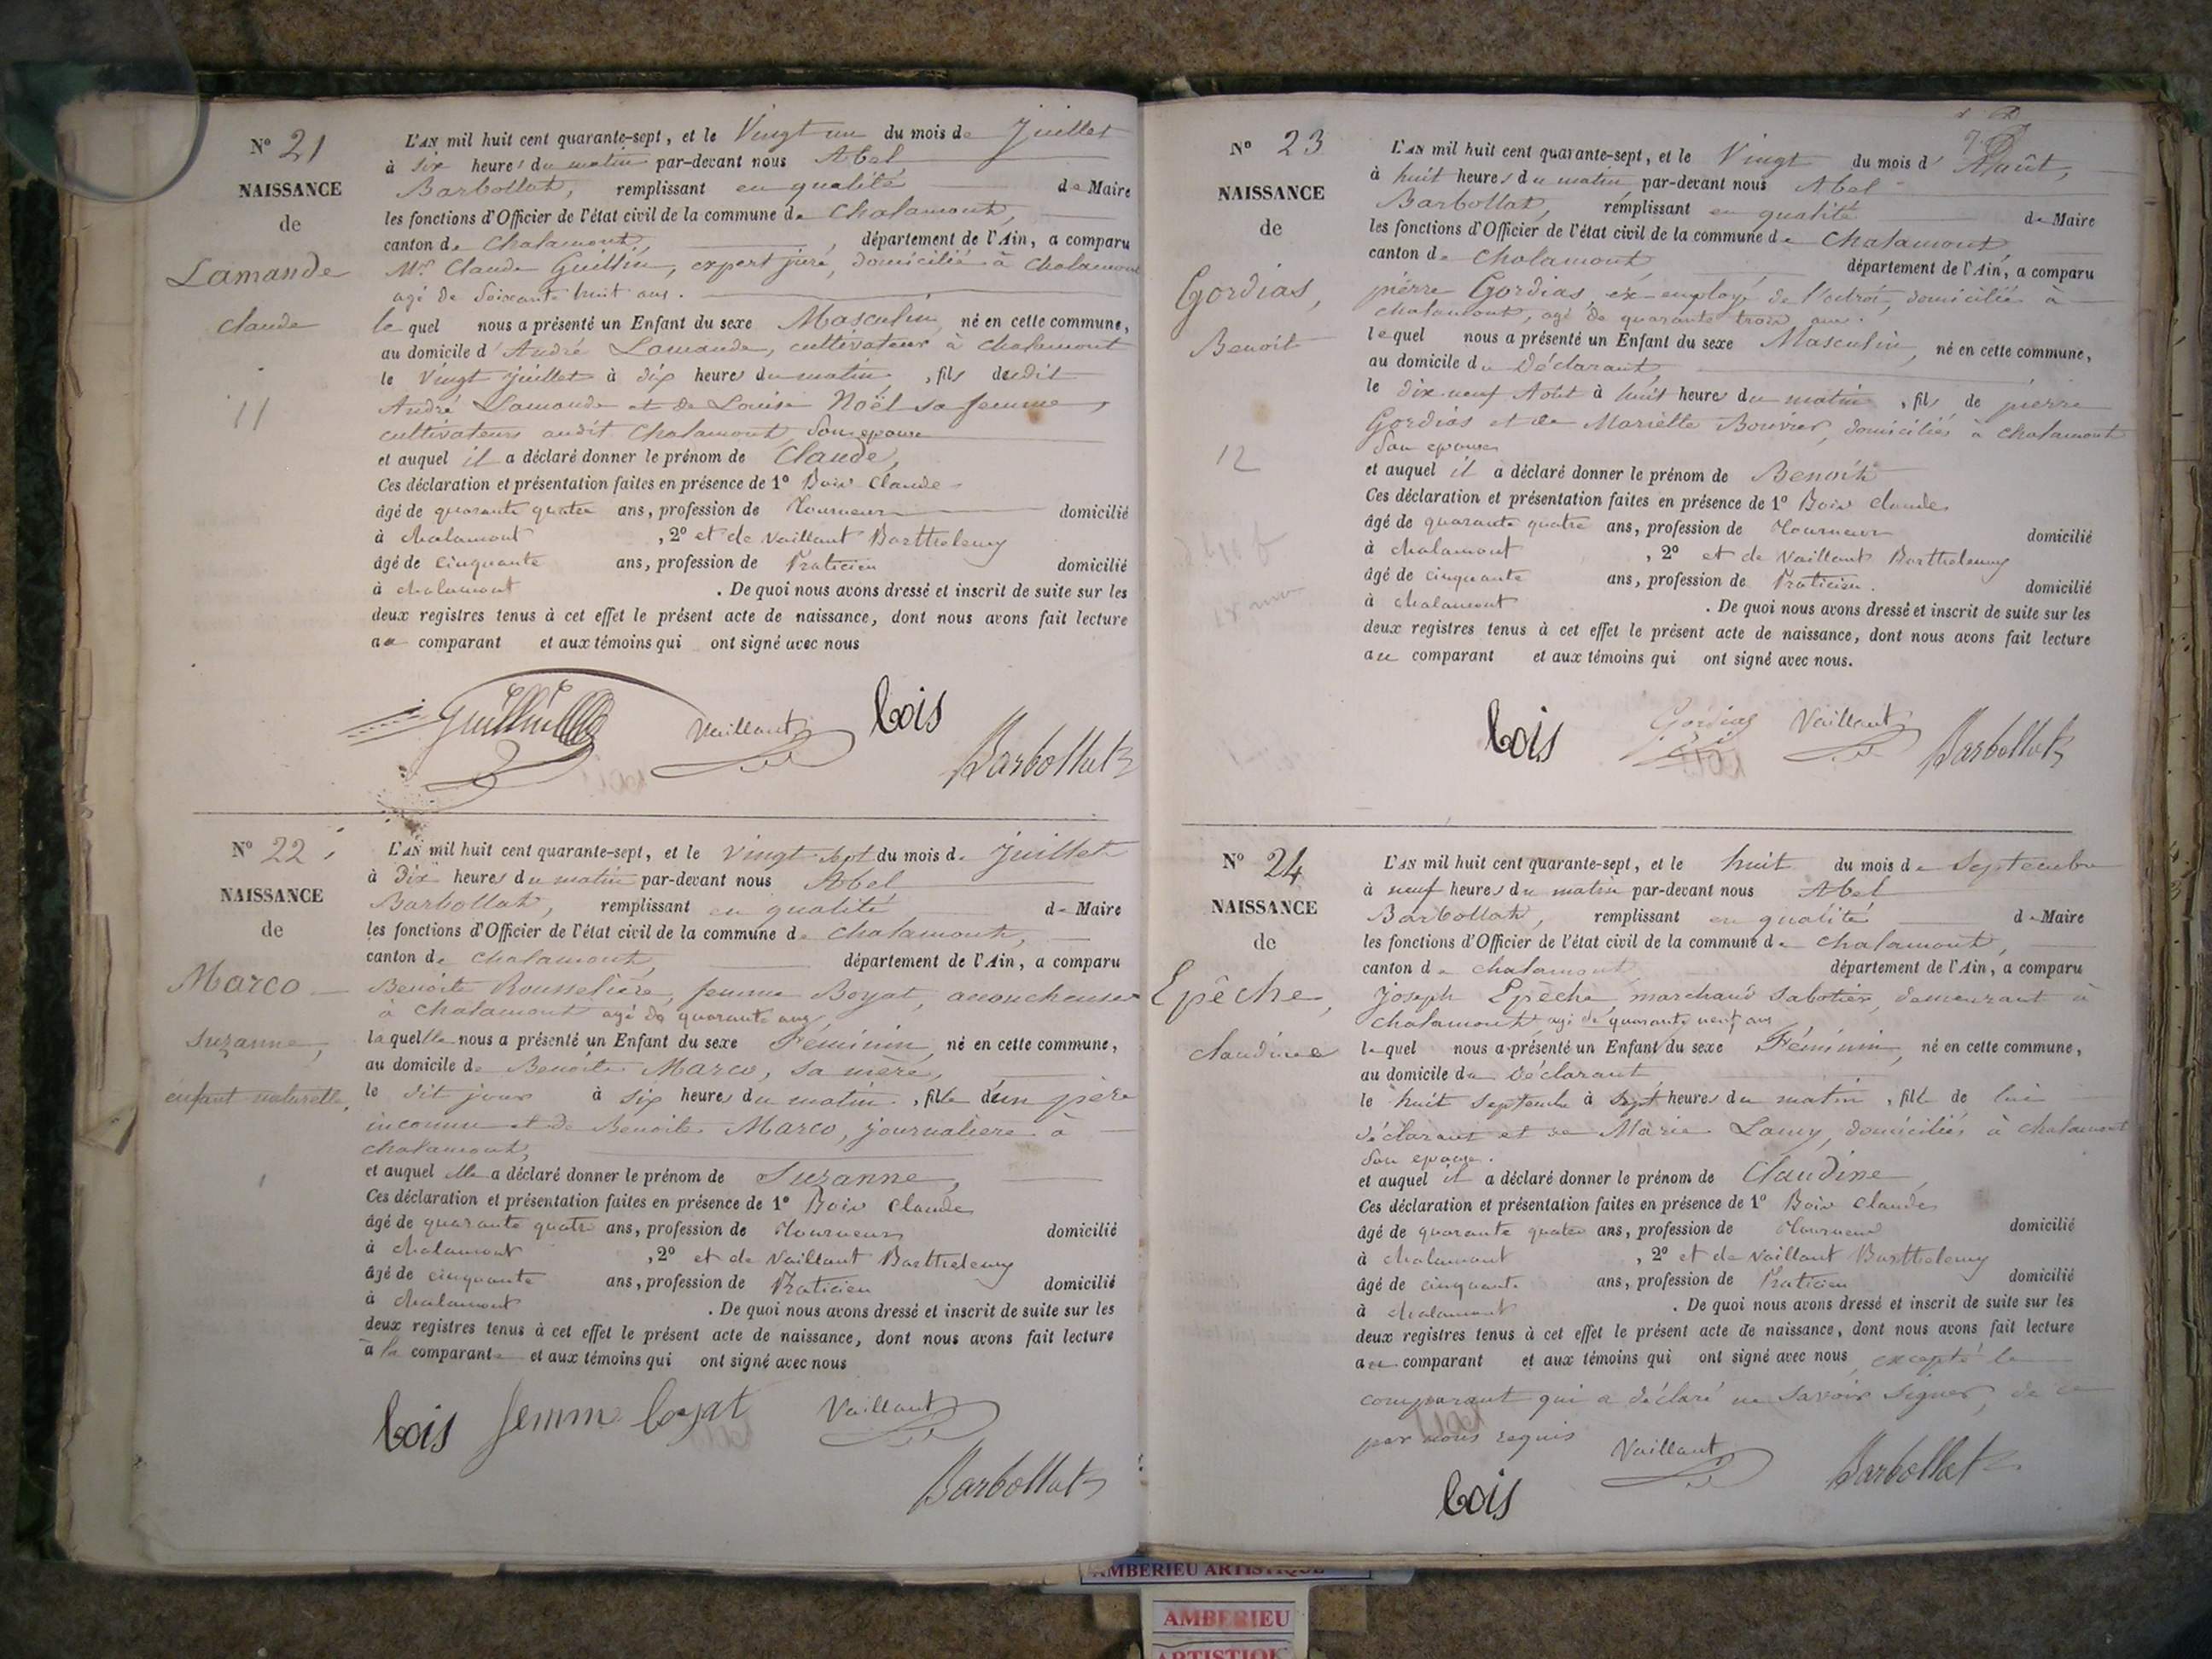 N° 21
NAISSANCE
de
Lamande
Claude
11
L'AN mil huit cent quarante-sept, et le Vingt un du mois de Juillet
à six heures du matin par-devant nous Abel
Barbollat, remplissant en qualité de Maire
les fonctions d'Officier de l'état civil de la commune de Chalamont,
canton de Chalamont, département de l'Ain, a comparu
Mr Claude Guillin, expert juré, domicilié à Chalamont
agé de soixante huit ans.
lequel nous a présenté un Enfant du sexe Masculin, né en cette commune,
au domicile d'André Lamande, cultivateur à Chalamont
le Vingt juillet à dix heures du matin, fils dudit
André Lamande et de Louise Noël sa femme,
cultivateurs audit Chalamont, son epouse
et auquel il a déclaré donner le prénom de Claude,
Ces déclaration et présentation faites en présence de 1° Bois Claude
âgé de quarante quatre ans, profession de Tourneur domicilié
à chalamont, 2° et de Vaillant Barthelemy
âgé de cinquante ans, profession de Praticien domicilié
à chalamont. De quoi nous avons dressé et inscrit de suite sur les
deux registres tenus à cet effet le présent acte de naissance, dont nous avons fait lecture
au comparant et aux témoins qui ont signé avec nous
Guillin Vaillant bois
Barbollat
N° 22
NAISSANCE
de
Marco
Suzanne,
enfant naturelle,
L'AN mil huit cent quarante-sept, et le Vingt sept du mois de Juillet
à Dix heures du matin par-devant nous Abel
Barbollat, remplissant en qualité de Maire
les fonctions d'Officier de l'état civil de la commune de Chalamont,
canton de Chalamont, département de l'Ain, a comparu
Benoite Rousselière, femme Boyat, accoucheuse
à Chalamont agé de quarante ans,
laquelle nous a présenté un Enfant du sexe Féminin, né en cette commune,
au domicile de Benoite Marco, sa mère,
le dit jour à six heures du matin, fille d'un père
inconnu et de Benoite Marco, journalière à
Chalamont,
et auquel elle a déclaré donner le prénom de Suzanne,
Ces déclaration et présentation faites en présence de 1° Bois Claude
âgé de quarante quatre ans, profession de Tourneur domicilié
à chalamont, 2° et de Vaillant Barthelemy
âgé de cinquante ans, profession de Praticien domicilié
à chalamont. De quoi nous avons dressé et inscrit de suite sur les
deux registres tenus à cet effet le présent acte de naissance, dont nous avons fait lecture
à la comparante et aux témoins qui ont signé avec nous
bois femme boyat Vaillant
Barbollat
N° 23
NAISSANCE
de
Gordias,
Benoit
12
L'AN mil huit cent quarante-sept, et le Vingt du mois d'Août,
à huit heures du matin par-devant nous Abel
Barbollat, remplissant en qualité de Maire
les fonctions d'Officier de l'état civil de la commune de Chalamont
canton de Chalamont département de l'Ain, a comparu
pierre Gordias, ex-employé de l'octroi, domicilié à
chalamont, agé de quarante trois ans.
lequel nous a présenté un Enfant du sexe Masculin, né en cette commune,
au domicile du Déclarant,
le dix neuf Août à huit heures du matin, fils de pierre
Gordias et de Mariette Bouvier, domiciliés à Chalamont
son epouse
et auquel il a déclaré donner le prénom de Benoit
Ces déclaration et présentation faites en présence de 1° Bois Claude
âgé de quarante quatre ans, profession de Tourneur domicilié
à chalamont, 2° et de Vaillant Barthelemy
âgé de cinquante ans, profession de Praticien. domicilié
à chalamont. De quoi nous avons dressé et inscrit de suite sur les
deux registres tenus à cet effet le présent acte de naissance, dont nous avons fait lecture
au comparant et aux témoins qui ont signé avec nous.
bois Gordias Vaillant Barbollat
N° 24
NAISSANCE
de
Epêche,
claudine
L'AN mil huit cent quarante-sept, et le huit du mois de Septembre
à neuf heures du matin par-devant nous Abel
Barbollat, remplissant en qualité de Maire
les fonctions d'Officier de l'état civil de la commune de Chalamont,
canton de Chalamont département de l'Ain, a comparu
Joseph Epêche, marchand sabotier, demeurant à
chalamont agé de quarante neuf ans
lequel nous a présenté un Enfant du sexe Féminin, né en cette commune,
au domicile du Déclarant
le huit Septembre à Sept heures du matin, fille de lui
déclarant et de Marie Lamy, domiciliés à Chalamont
son epouse.
et auquel il a déclaré donner le prénom de Claudine
Ces déclaration et présentation faites en présence de 1° Bois Claude
âgé de quarante quatre ans, profession de Tourneur domicilié
à chalamont, 2° et de Vaillant Barthelemy
âgé de cinquante ans, profession de Praticien domicilié
à chalamont. De quoi nous avons dressé et inscrit de suite sur les
deux registres tenus à cet effet le présent acte de naissance, dont nous avons fait lecture
au comparant et aux témoins qui ont signé avec nous excepté le
comparant qui a déclaré ne savoir signer, de ce
par nous requis
bois Vaillant Barbollat
AMBERIEU ARTISTIQUE
AMBERIEU